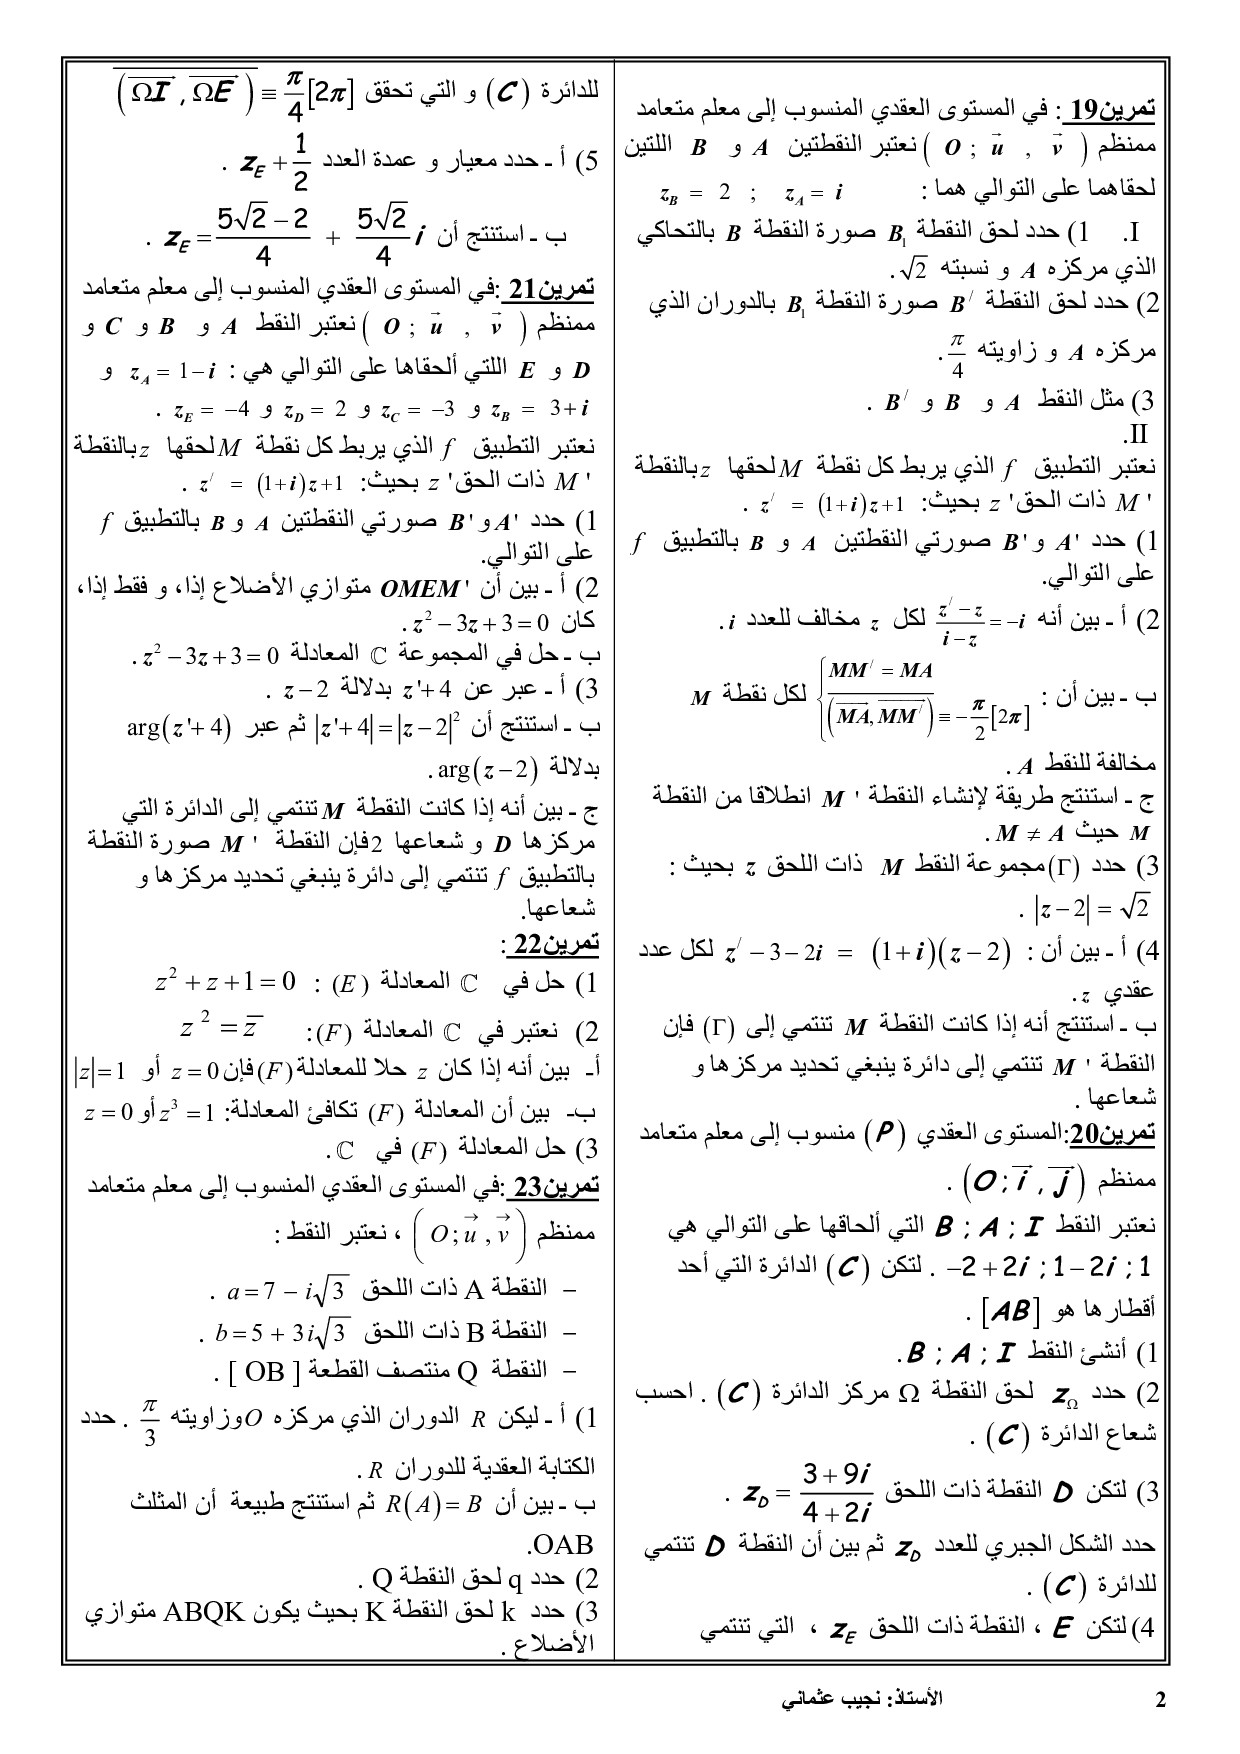 تمرين19 : في المستوى العقدي المنسوب إلى معلم متعامد
ممنظم ( O ; u⃗ , v⃗ ) نعتبر النقطتين A و B اللتين
لحقاهما على التوالي هما : z_A = i ; z_B = 2
I. 1) حدد لحق النقطة B₁ صورة النقطة B بالتحاكي
الذي مركزه A و نسبته √2 .
2) حدد لحق النقطة B′ صورة النقطة B₁ بالدوران الذي
مركزه A و زاويته π/4 .
3) مثل النقط A و B و B′ .
II.
نعتبر التطبيق f الذي يربط كل نقطة M لحقها z بالنقطة
M ' ذات الحق z' بحيث: z′ = (1+i)z+1 .
1) حدد A' و B' صورتي النقطتين A و B بالتطبيق f
على التوالي.
2) أ ـ بين أنه (z′ − z)/(i − z) = −i لكل z مخالف للعدد i .
ب ـ بين أن : { MM′ = MA ; (MA⃗, MM′⃗) ≡ −π/2 [2π] لكل نقطة M
مخالفة للنقط A .
ج ـ استنتج طريقة لإنشاء النقطة M ' انطلاقا من النقطة
M حيث M ≠ A .
3) حدد (Γ) مجموعة النقط M ذات اللحق z بحيث :
|z − 2| = √2 .
4) أ ـ بين أن : z′ − 3 − 2i = (1+i)(z − 2) لكل عدد
عقدي z .
ب ـ استنتج أنه إذا كانت النقطة M تنتمي إلى (Γ) فإن
النقطة M ' تنتمي إلى دائرة ينبغي تحديد مركزها و
شعاعها .
تمرين20:المستوى العقدي (P) منسوب إلى معلم متعامد
ممنظم (O ; i⃗ , j⃗) .
نعتبر النقط B ; A ; I التي ألحاقها على التوالي هي
−2 + 2i ; 1 − 2i ; 1 . لتكن (C) الدائرة التي أحد
أقطارها هو [AB] .
1) أنشئ النقط B ; A ; I .
2) حدد z_Ω لحق النقطة Ω مركز الدائرة (C) . احسب
شعاع الدائرة (C) .
3) لتكن D النقطة ذات اللحق z_D = (3 + 9i)/(4 + 2i) .
حدد الشكل الجبري للعدد z_D ثم بين أن النقطة D تنتمي
للدائرة (C) .
4) لتكن E ، النقطة ذات اللحق z_E ، التي تنتمي
للدائرة (C) و التي تحقق (ΩI⃗ , ΩE⃗) ≡ π/4 [2π]
5) أ ـ حدد معيار و عمدة العدد z_E + 1/2 .
ب ـ استنتج أن z_E = (5√2 − 2)/4 + (5√2)/4 i .
تمرين21 :في المستوى العقدي المنسوب إلى معلم متعامد
ممنظم ( O ; u⃗ , v⃗ ) نعتبر النقط A و B و C و
D و E اللتي ألحقاها على التوالي هي : z_A = 1−i و
z_B = 3+i و z_C = −3 و z_D = 2 و z_E = −4 .
نعتبر التطبيق f الذي يربط كل نقطة M لحقها z بالنقطة
M ' ذات الحق z' بحيث: z′ = (1+i)z+1 .
1) حدد A' و B' صورتي النقطتين A و B بالتطبيق f
على التوالي.
2) أ ـ بين أن OMEM' متوازي الأضلاع إذا، و فقط إذا،
كان z² − 3z + 3 = 0 .
ب ـ حل في المجموعة ℂ المعادلة z² − 3z + 3 = 0 .
3) أ ـ عبر عن z'+ 4 بدلالة z − 2 .
ب ـ استنتج أن |z'+ 4| = |z − 2|² ثم عبر arg(z'+ 4)
بدلالة arg(z − 2) .
ج ـ بين أنه إذا كانت النقطة M تنتمي إلى الدائرة التي
مركزها D و شعاعها 2 فإن النقطة M ' صورة النقطة
بالتطبيق f تنتمي إلى دائرة ينبغي تحديد مركزها و
شعاعها.
تمرين22 :
1) حل في ℂ المعادلة (E) : z² + z + 1 = 0
2) نعتبر في ℂ المعادلة (F): z² = z̄
أـ بين أنه إذا كان z حلا للمعادلة (F) فإن z = 0 أو |z| = 1
ب- بين أن المعادلة (F) تكافئ المعادلة: z³ = 1 أو z = 0
3) حل المعادلة (F) في ℂ .
تمرين23 :في المستوى العقدي المنسوب إلى معلم متعامد
ممنظم ( O ; u⃗ , v⃗ ) ، نعتبر النقط :
– النقطة A ذات اللحق a = 7 − i√3 .
– النقطة B ذات اللحق b = 5 + 3i√3 .
– النقطة Q منتصف القطعة [ OB ] .
1) أ ـ ليكن R الدوران الذي مركزه O وزاويته π/3 . حدد
الكتابة العقدية للدوران R .
ب ـ بين أن R(A) = B ثم استنتج طبيعة أن المثلث
OAB.
2) حدد q لحق النقطة Q .
3) حدد k لحق النقطة K بحيث يكون ABQK متوازي
الأضلاع .
الأستاذ: نجيب عثماني
2